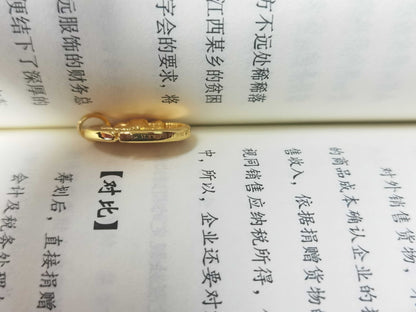 方不远处稀稀落
江西某乡的贫困
字会的要求，将
远服饰的财务总
更结下了深厚的
对外销售货物，
的商品成本确认企业的
售收入，依据捐赠货物
视同销售应纳税所得，
中，所以，企业还要对
【对比】
筹划后，直接捐赠
会计及税务处理